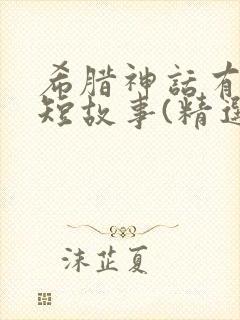 希腊神话有
短故事(精选
沫芷夏